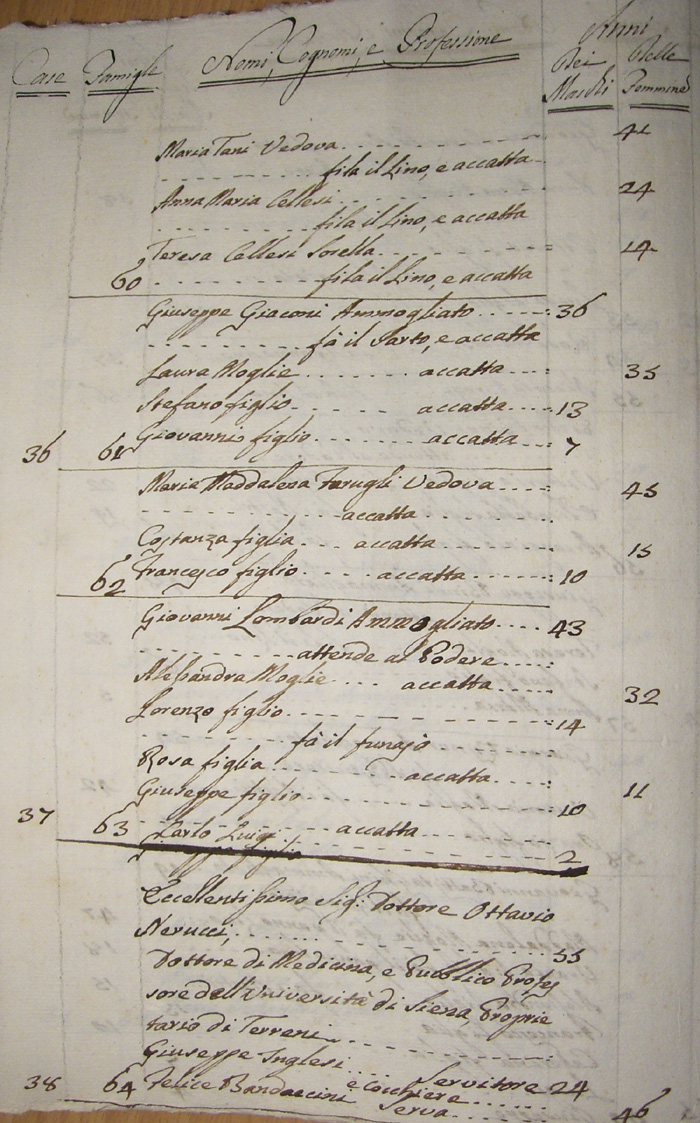 Case Famiglie Nomi, Cognomi, e Professione Anni
Dei Maschi Delle Femmine
Maria Tani Vedova 41
fila il Lino, e accatta
Anna Maria Cellesi 24
fila il Lino, e accatta
Teresa Cellesi Sorella 14
60 fila il Lino, e accatta
Giuseppe Giaconi Ammogliato 36
fà il Sarto, e accatta
Laura Moglie accatta 35
Stefano figlio accatta 13
36 61 Giovanni figlio accatta 7
Maria Maddalena Vedova 45
accatta
Costanza figlia accatta 15
62 Francesco figlio accatta 10
Giovanni Lombardi Ammogliato 43
attende al Podere
Alessandra Moglie accatta 32
Lorenzo figlio 14
fà il funajo
Rosa figlia accatta 11
Giuseppe figlio 10
37 63 Carlo Luigi accatta
figlio 2
Eccellentissimo Sig: Dottore Ottavio
Nerucci, 55
Dottore di Medicina, e Pubblico Profes
sore dell'Università di Siena, Proprie
tario di Terreni
Giuseppe Inglesi Servitore 24
e Cocchiere
38 64 Felice Bandaccini Serva 46